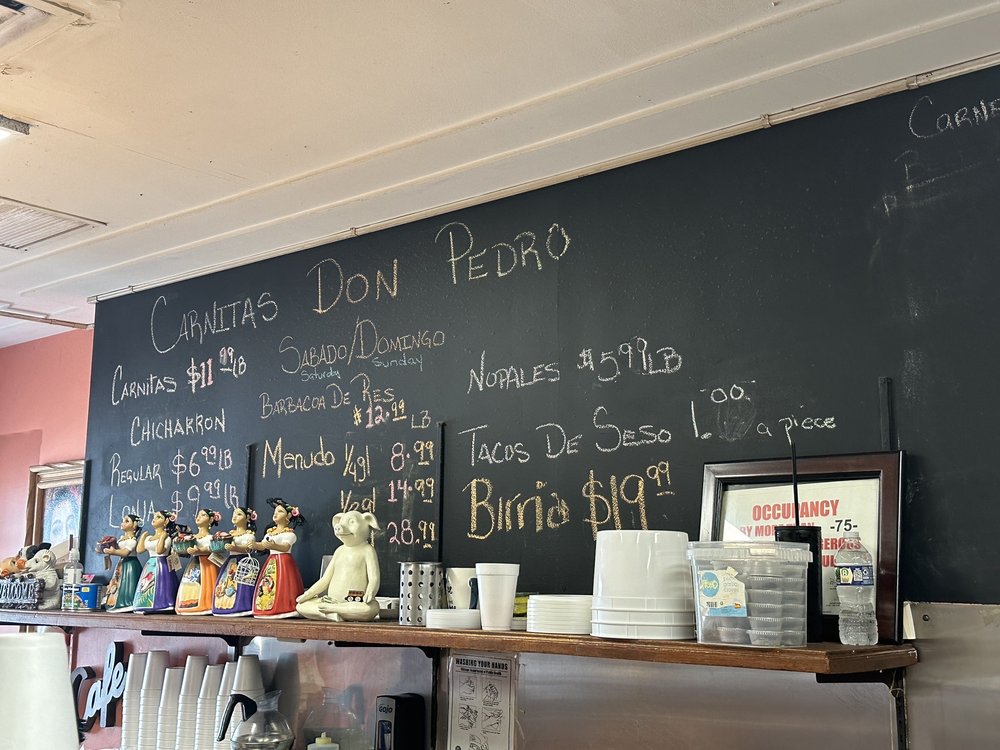 CARNITAS DON PEDRO
CARNITAS $11.99 LB
CHICHARRON
REGULAR $6.99 LB
LONJA $9.99 LB
SABADO/DOMINGO
Saturday Sunday
BARBACOA DE RES
$12.99 LB
Menudo 1/4gl 8.99
1/2gl 14.99
28.99
NOPALES $5.99 LB
TACOS DE SESO
a piece
Birria $19.99
CARNE
OCCUPANCY
-75-
WELCOME
Cafe
WASHING YOUR HANDS
GOJO